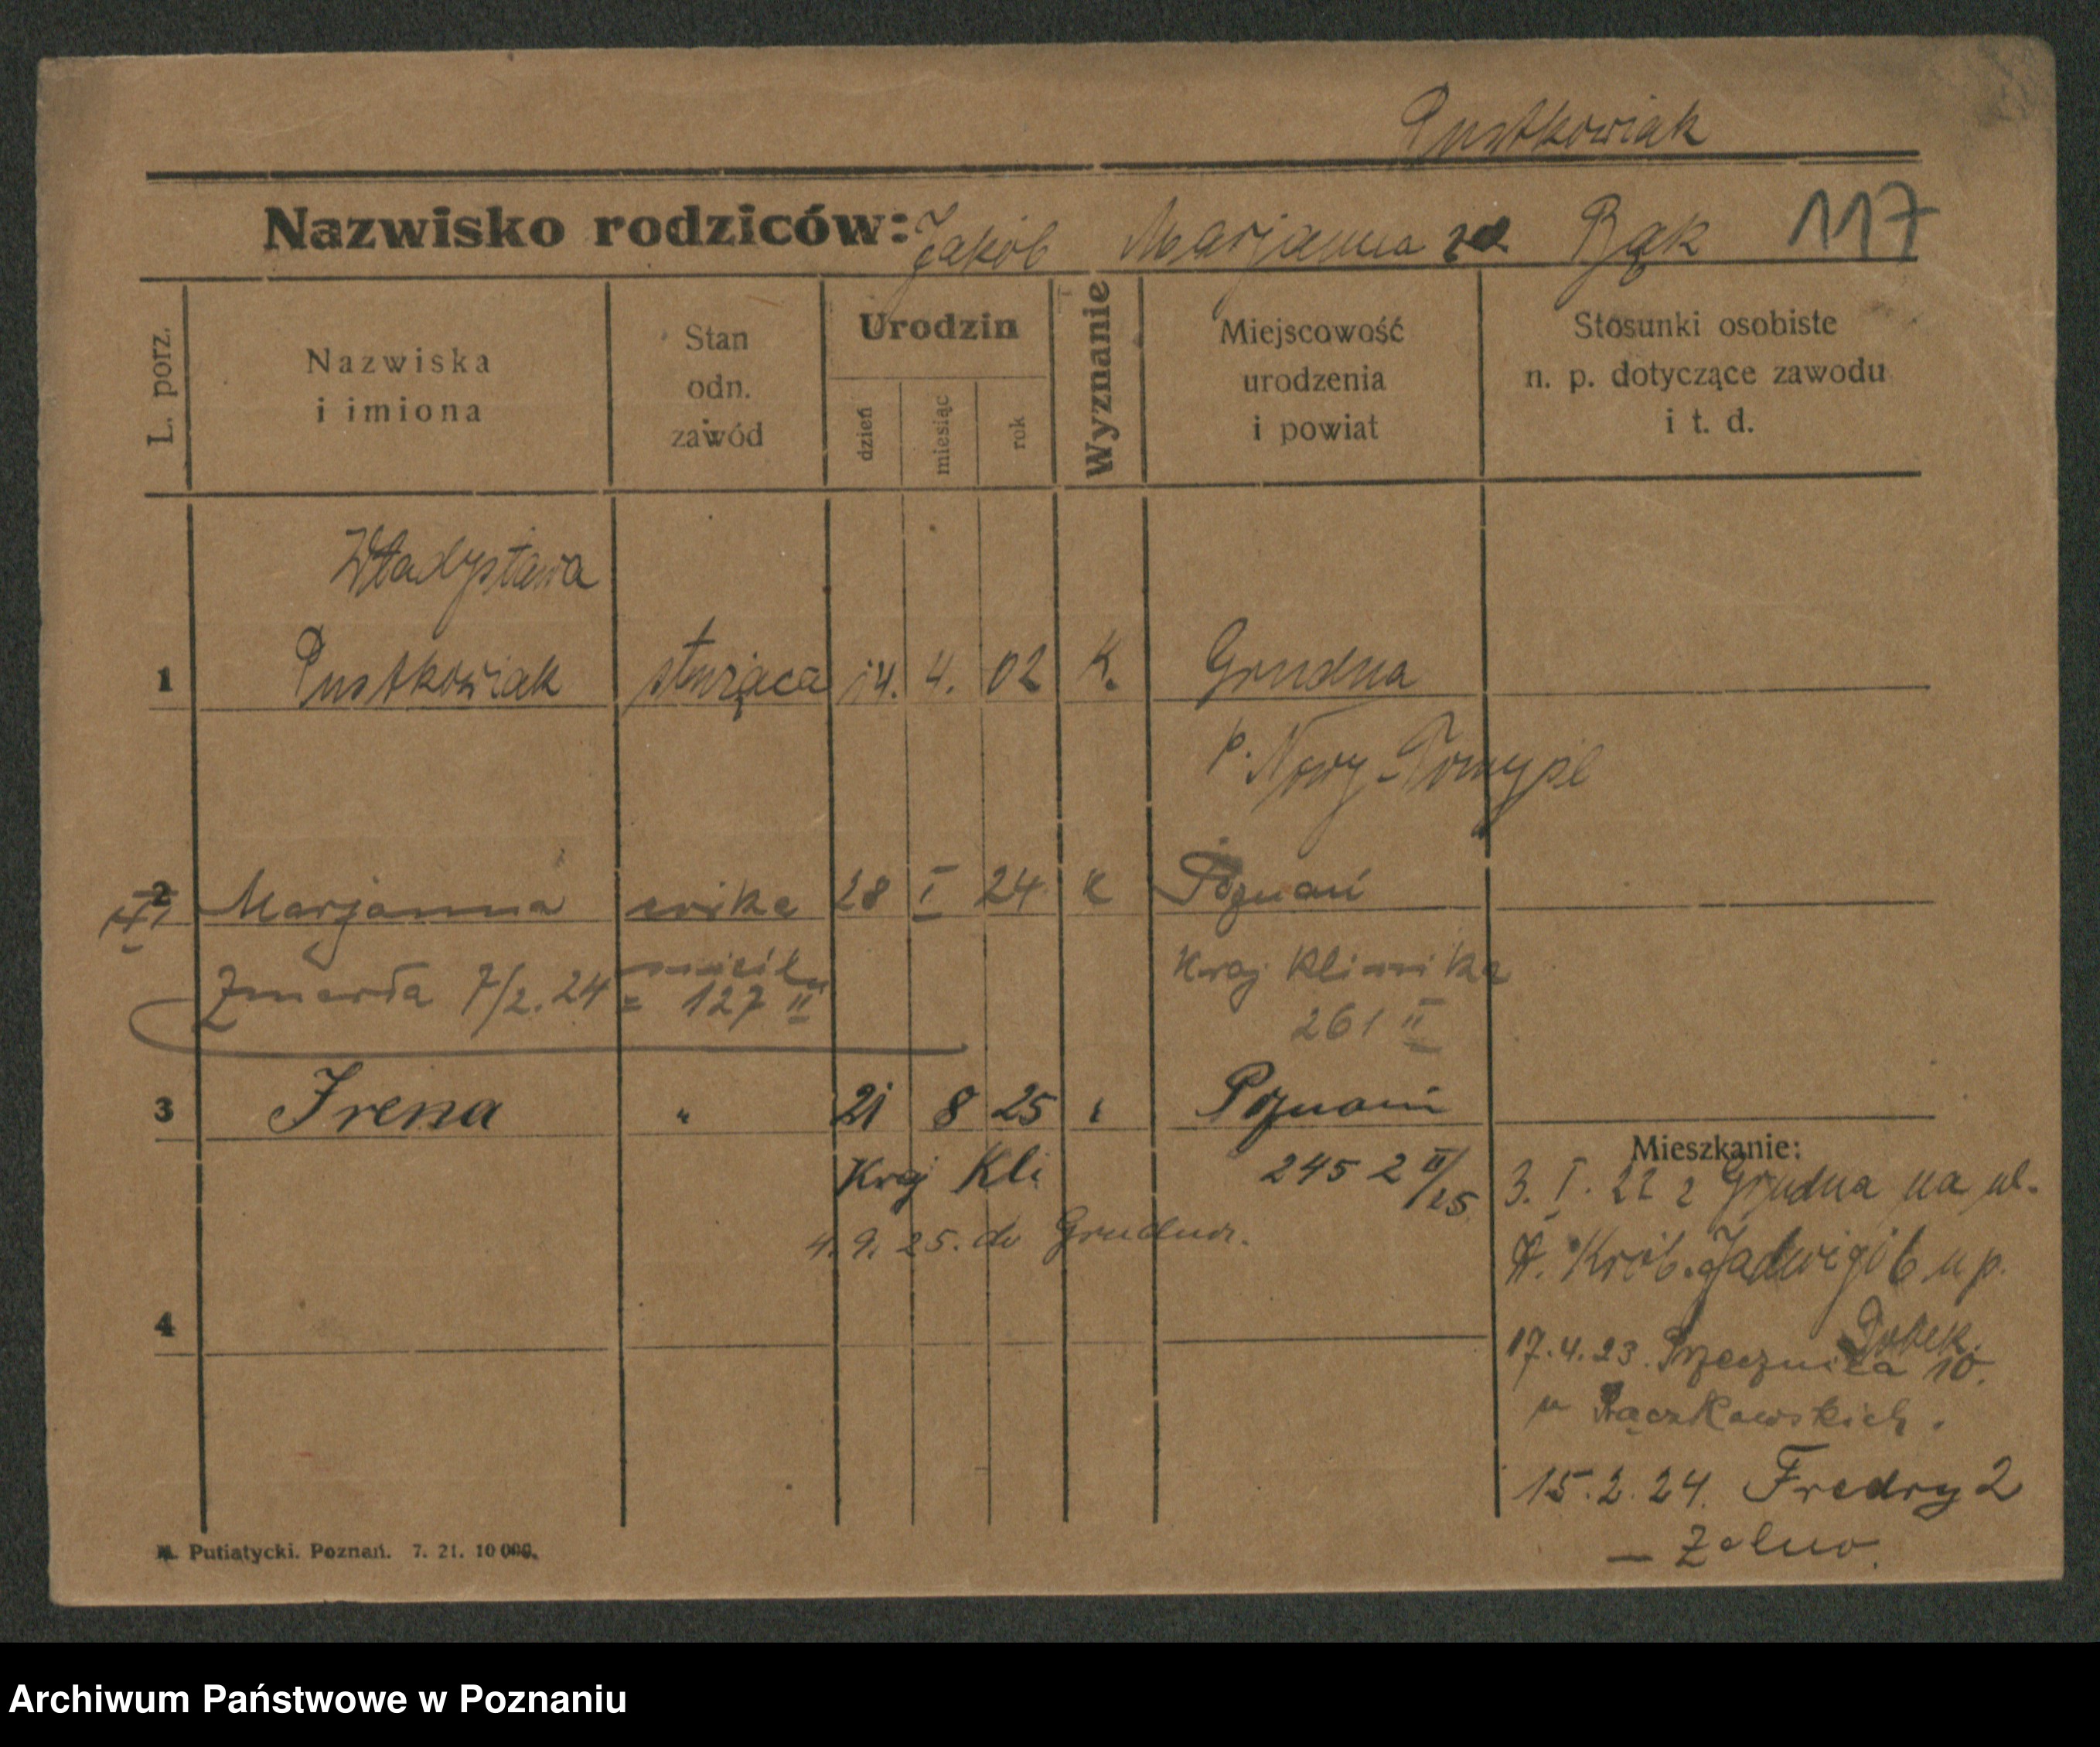 Pustkowiak
Nazwisko rodziców: Jakób Marjanna zd Bąk 117
L. porz.
Nazwiska
i imiona
Stan
odn.
zawód
Urodzin
dzień
miesiąc
rok
Wyznanie
Miejscowość
urodzenia
i powiat
Stosunki osobiste
n. p. dotyczące zawodu
i t. d.
Władysława
1 Pustkowiak służąca 14. 4. 02 K. Grudna
p. Nowy-Tomyśl
2 Marjanna córka 28 I 24 k Poznań
Zmarła 7/2. 24 = 127 II
Kraj Klinika
261 II
3 Irena " 21 8 25 Poznań
Kraj Kli 245 2 II/25
4. 9. 25. do Grudna.
4
Mieszkanie:
3. I. 22 z Grudna na ul.
Król. Jadwigi 6 u p.
17.4.23. Strzecznica 10.
u Rączkowskich.
15.2.24. Fredry 2
— Zelno.
Putiatycki. Poznań. 7. 21. 10 000.
Archiwum Państwowe w Poznaniu